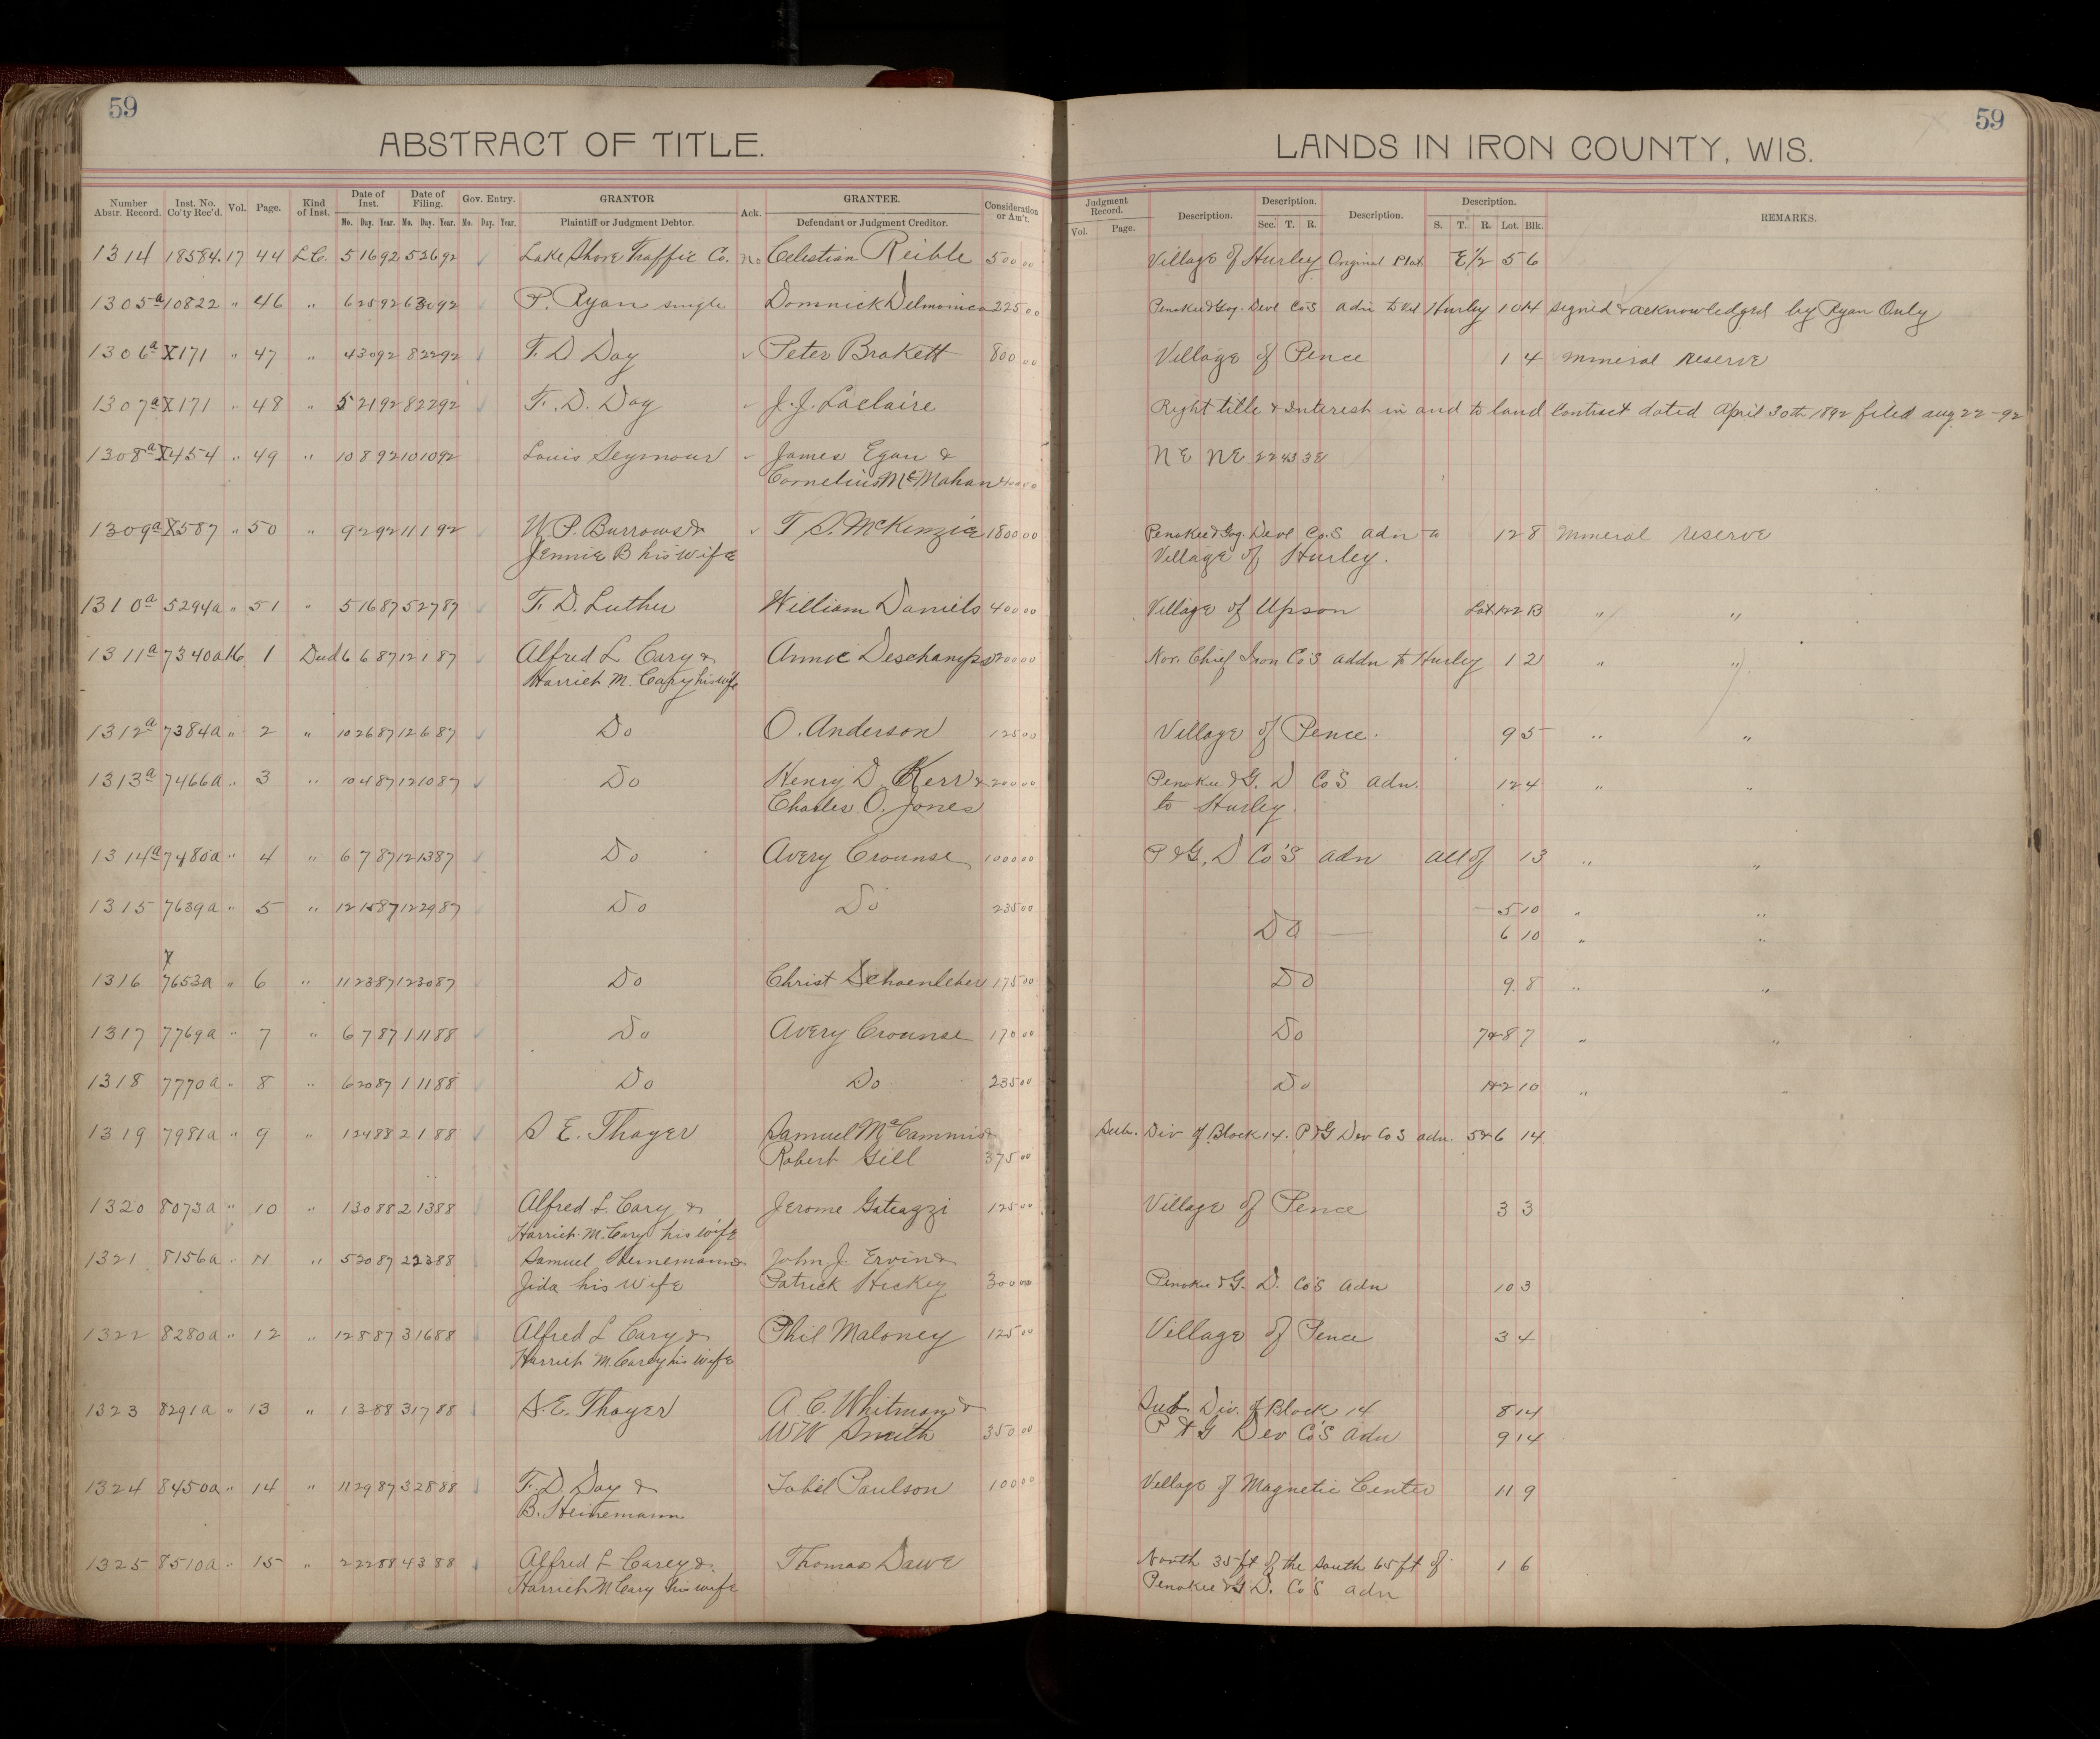 59
ABSTRACT OF TITLE.
Number Abstr. Record. Inst. No. Co'ty Rec'd. Vol. Page. Kind of Inst. Date of Inst. Mo. Day. Year. Date of Filing. Mo. Day. Year. Gov. Entry. Mo. Day. Year. GRANTOR Plaintiff or Judgment Debtor. Ack. GRANTEE. Defendant or Judgment Creditor. Consideration or Am't.
1314 18584. 17 44 L.C. 5 16 92 5 26 92 Lake Shore Traffic Co. no Celestian Reible 500 00
1305a 10822 " 46 " 6 25 92 6 30 92 P. Ryan single Domnick Delmonico 225 00
1306a X171 " 47 " 4 30 92 8 22 92 F. D Day Peter Brakett 800 00
1307a X171 " 48 " 5 21 92 8 22 92 F. D. Day J. J. Laclaire
1308a X454 " 49 " 10 8 92 10 10 92 Louis Seymour James Egan &
Cornelius McMahan 400 00
1309a X587 " 50 " 9 2 92 11 1 92 W. P. Burrows & T. S. McKenzie 1800 00
Jennie B his wife
1310a 5294a " 51 " 5 16 87 5 27 87 F. D. Luther William Daniels 400 00
1311a 7340a 16 1 Deed 6 6 87 12 1 87 Alfred L Cary & Annie Deschamps 00 00
Harriet M. Cary his wife
1312a 7384a " 2 " 10 26 87 12 6 87 Do O. Anderson 125 00
1313a 7466a " 3 " 10 4 87 12 10 87 Do Henry D. Kerr & 200 00
Charles O. Jones
1314a 7480a " 4 " 6 7 87 12 13 87 Do Avery Crounse 1000 00
1315 7639a " 5 " 12 15 87 12 29 87 Do Do 235 00
X
1316 7653a " 6 " 11 23 87 12 30 87 Do Christ Schoenleber 175 00
1317 7769a " 7 " 6 7 87 1 11 88 Do Avery Crounse 170 00
1318 7770a " 8 " 6 20 87 1 11 88 Do Do 235 00
1319 7981a " 9 " 1 24 88 2 1 88 S E. Thayer Samuel McCammis &
Robert Gill 375 00
1320 8073a " 10 " 1 30 88 2 13 88 Alfred L. Cary & Jerome 125 00
Harriet M. Cary his wife
1321 8156a " 11 " 5 20 87 2 23 88 Samuel Heinemann & John J. Ervin &
Jida his wife Patrick Hickey 300 00
1322 8280a " 12 " 12 8 87 3 16 88 Alfred L Cary & Phil Maloney 125 00
Harriet M. Carey his wife
1323 8291a " 13 " 1 3 88 3 17 88 S. E. Thayer A. C. Whitman &
W W Smith 350 00
1324 8450a " 14 " 11 29 87 3 28 88 F. D. Day & Paulson 100 00
B. Heinemann
1325 8510a " 15 " 2 22 88 4 3 88 Alfred L Carey & Thomas Dawe
Harriet M Cary his wife
59
LANDS IN IRON COUNTY, WIS.
Judgment Record. Vol. Page. Description. Description. Sec. T. R. Description. Description. S. T. R. Lot. Blk. REMARKS.
Village of Hurley Original Plat E 1/2 5 6
Penokee & Gog. Devl Co's adn to Vil Hurley 10 14 signed & acknowledged by Ryan Only
Village of Pence 1 4 Mineral Reserve
Right title & Interest in and to land Contract dated April 30th 1892 filed aug 22-92
NE NE 22 45 3E
Penokee & Gog. Devl Co.s adn to 12 8 Mineral reserve
Village of Hurley.
Village of Upson Lot 12 B " "
Nor. Chief Iron Co's addn to Hurley 1 2 " "
Village of Pence. 9 5 " "
Penokee & G. D Co's adn. 12 4 " "
to Hurley.
P & G. D Co's adn all of 13 " "
5 10 " "
Do 6 10 " "
Do 9 8 " "
Do 7&8 7 " "
Do 1&2 10 " "
Sub. Div of Block 14. P & G Dev Co s adn. 5&6 14
Village of Pence 3 3
Penokee & G. D. Co's adn 10 3
Village of Pence 3 4
Sub. Div. of Block 14 8 14
P & G Dev Co's adn 9 14
Village of Magnetic Center 11 9
North 35 ft of the South 65 ft of 1 6
Penokee & G D. Co's adn